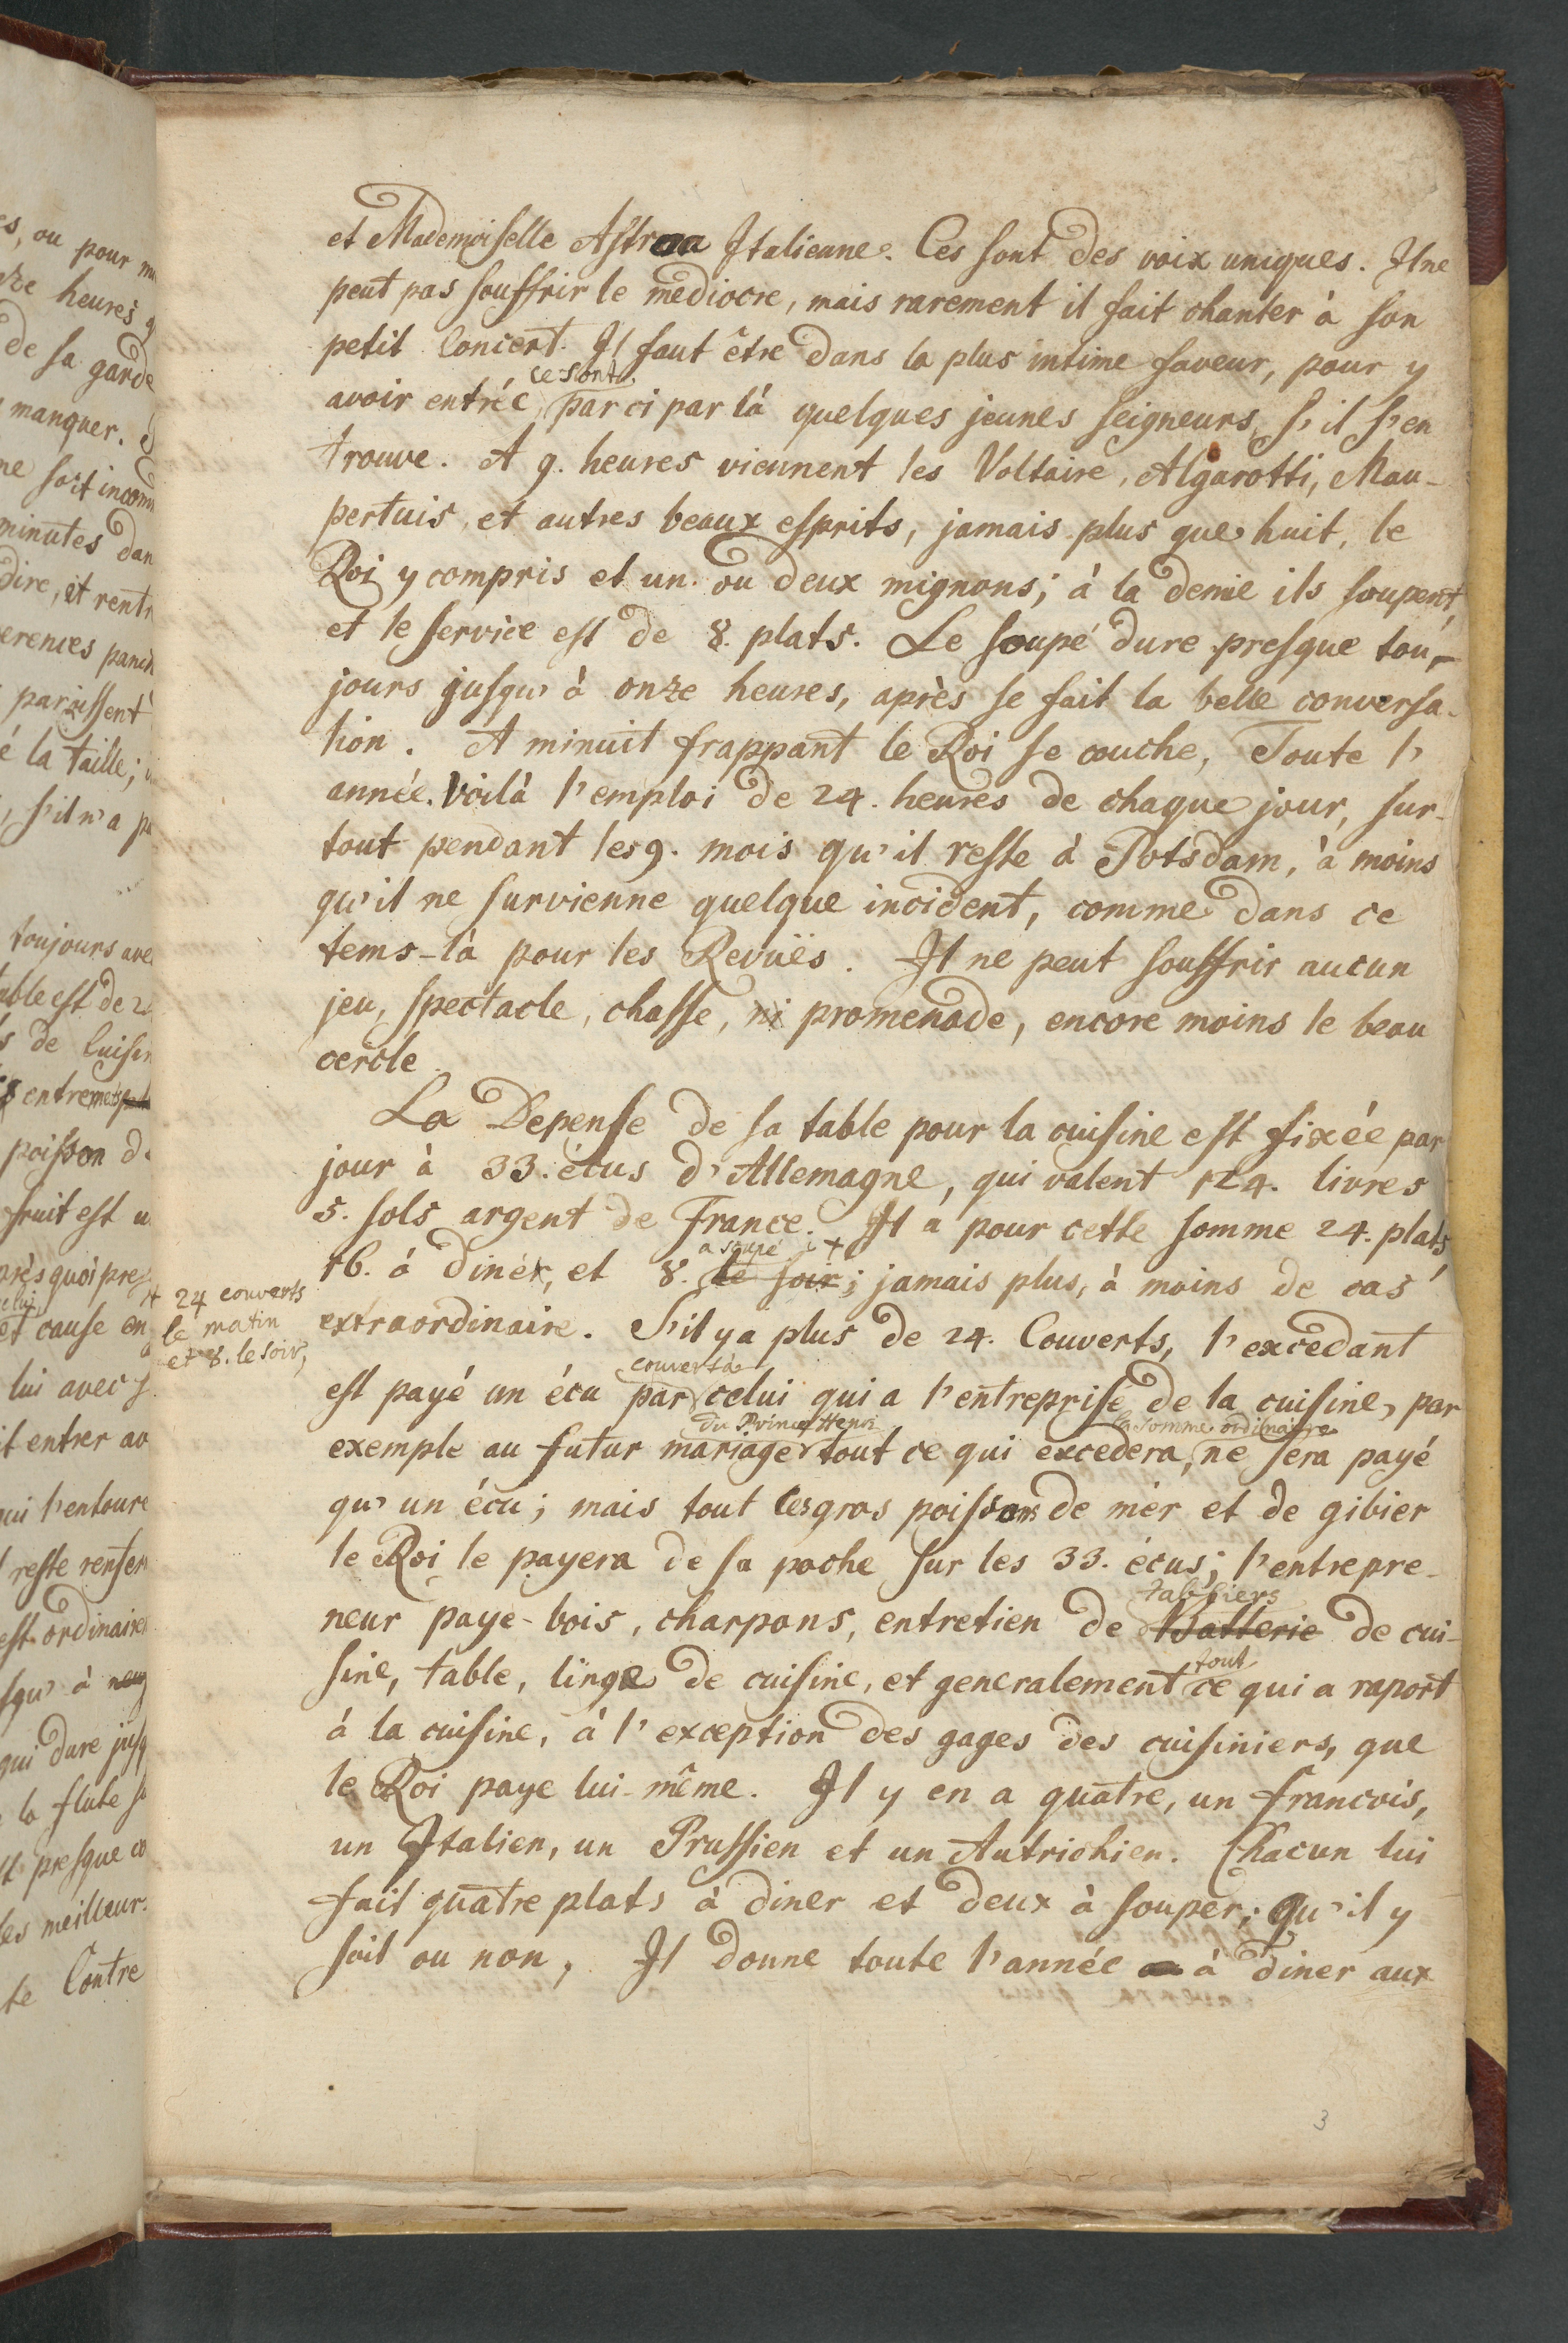 et Mademoiselle Astraa Italienne. Ces sont des voix uniques. Il ne
peut pas souffrir le mediocre, mais rarement il fait chanter à son
petit Concert. Il faut être dans la plus intime faveur, pour y
ce sont
avoir entrée, par ci par là quelques jeunes seigneurs, s'il s'en
trouve. A 9. heures viennent les Voltaire, Algarotti, Mau-
pertuis, et autres beaux esprits, jamais plus que huit, le
Roi y compris et un ou deux mignons; à la demie ils soupent,
et le service est de 8. plats. Le soupé dure presque tou-
jours jusqu'à onze heures, après se fait la belle conversa-
tion. A minuit frappant le Roi se couche, Toute l'
année. Voilà l'emploi de 24. heures de chaque jour, sur-
tout pendant les 9. mois qu'il reste à Potsdam, à moins
qu'il ne survienne quelque incident, comme dans ce
tems-là pour les Revuës. Il ne peut souffrir aucun
jeu, spectacle, chasse, ni promenade, encore moins le beau
cercle.
La Depense de sa table pour la cuisine est fixée par
jour à 33. écus d'Allemagne, qui valent 124. livres
5. sols argent de France. Il a pour cette somme 24. plats,
a soupé +
16. à diner, et 8. le soir; jamais plus, à moins de cas
+ 24 couverts
le matin
et 8. le soir,
extraordinaire. S'il y a plus de 24. Couverts, l'excedant
couvert à
est payé un écu par celui qui a l'entreprise de la cuisine, par
du Prince Henri la somme ordinaire
exemple au futur mariage tout ce qui excedera, ne sera payé
qu'un écu; mais tout les gros poissons de mer et de gibier
le Roi le payera de sa poche sur les 33. écus; l'entrepre-
tabliers
neur paye-bois, charpons, entretien de Batterie de cui-
tout
sine, table, linge de cuisine, et generalement ce qui a raport
à la cuisine, à l'exception des gages des cuisiniers, que
le Roi paye lui-même. Il y en a quatre, un francois,
un Italien, un Prussien et un Autrichien. Chacun lui
fait quatre plats à diner et deux à souper; qu'il y
soit ou non, Il donne toute l'année à diner aux
3
es, ou pour
heures
de sa garde
manquer.
minutes dan
dire, et rentr
parqissent
é la taille;
s'il n'a
toujours avec
table est de
de Cuisin
entremets
poisson d
fruit est
après quoi
celui
et cause en
lui avec
entrer
qui l'entoure
reste renfer
est ordinaire
qui dure jusq
la flute
presque
les meilleurs
te Contre